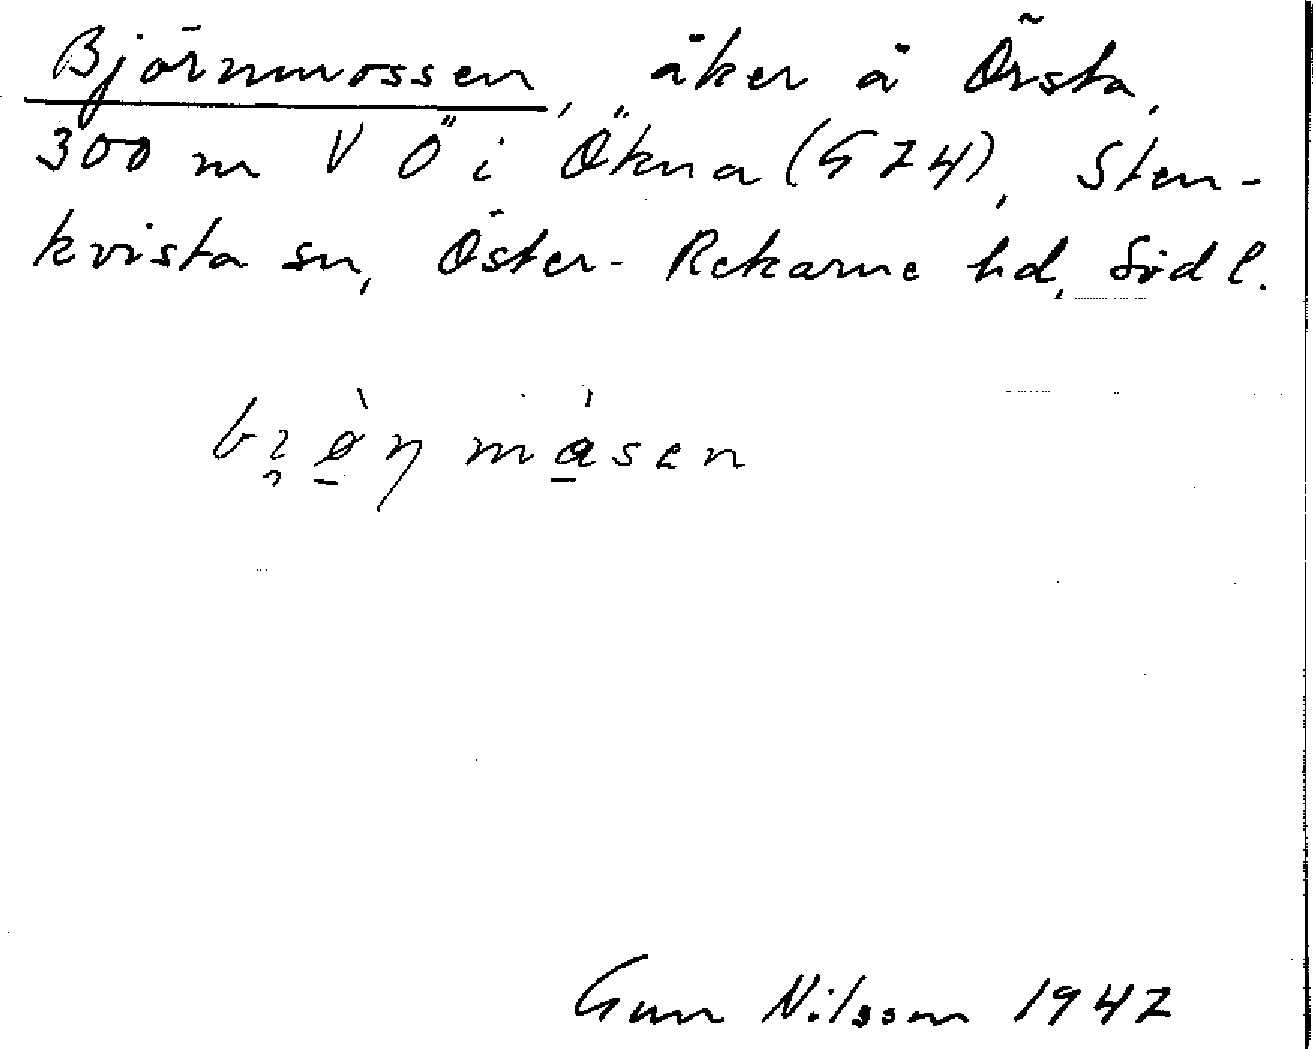 Björnmossen, åker å Örsta,
300 m V Ö i Ökna (G 74), Sten-
kvista sn, Öster-Rekarne hd, Södl.
måsen
Gun Nilsson 1947